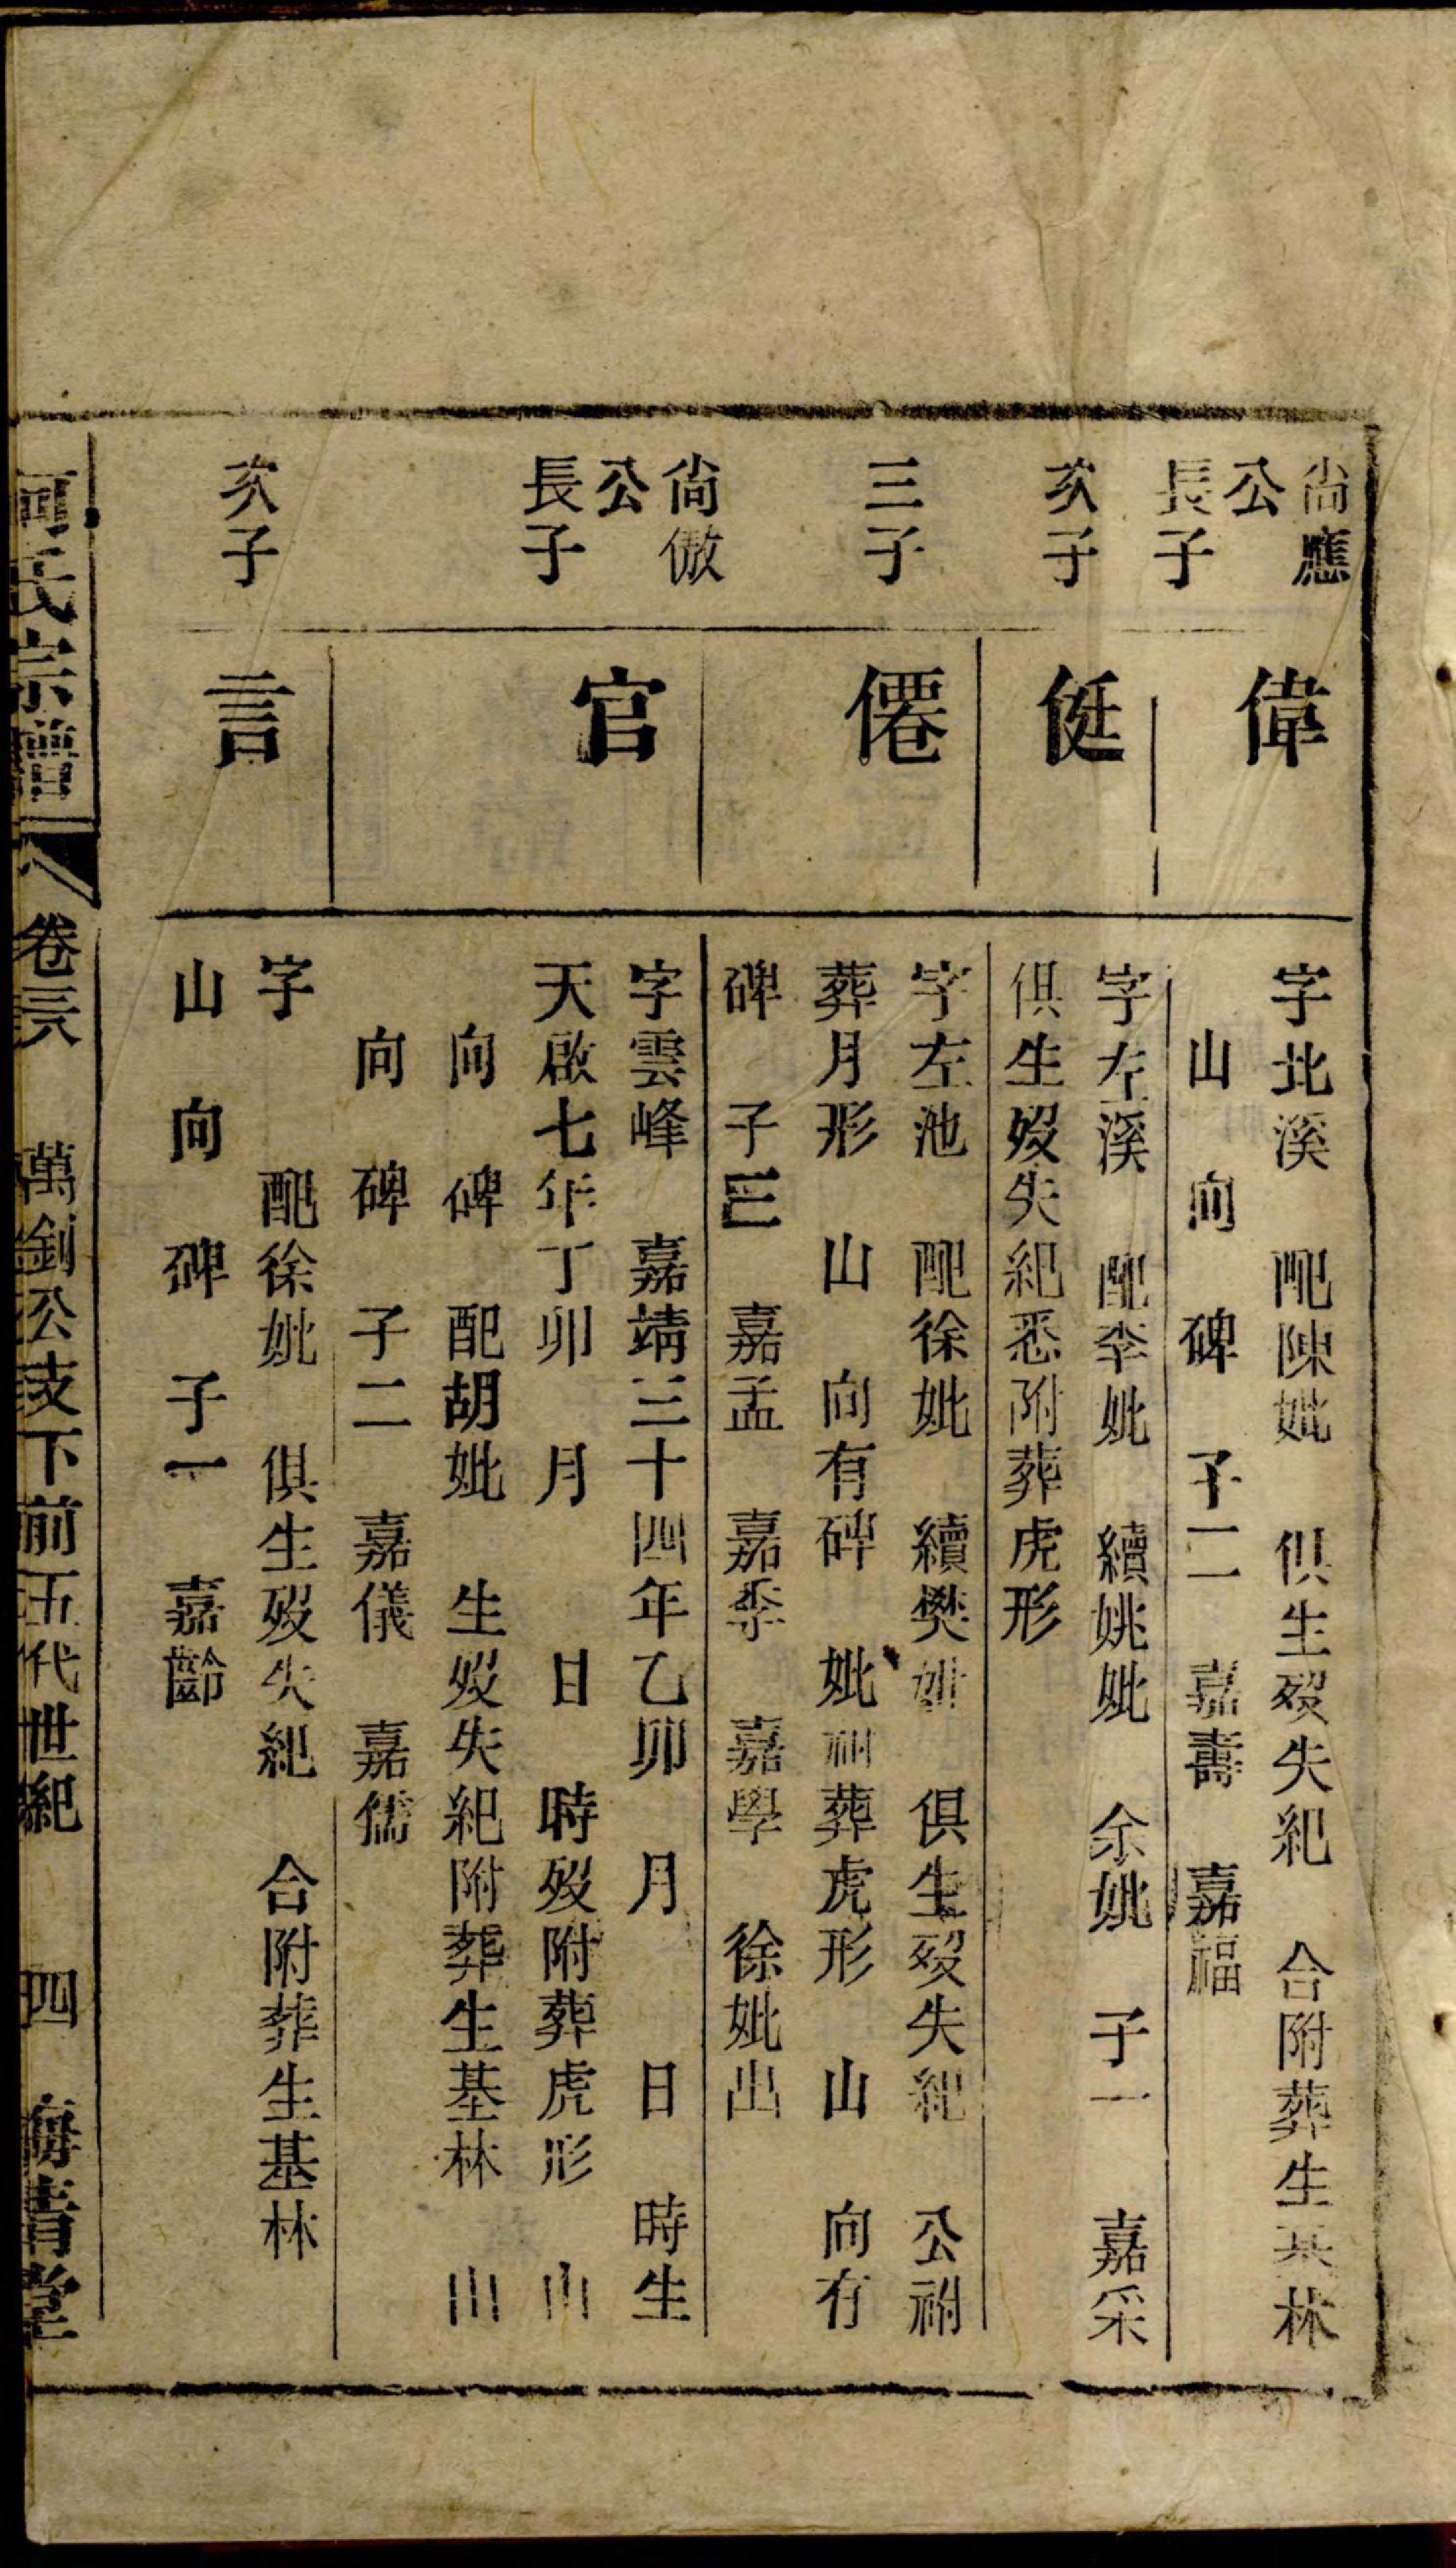 尙應
公
長子
偉
字北溪　配陳妣　俱生歿失紀　合附葬生基林
山　向　碑　子二　嘉壽　嘉福
次子
侹
字左溪　配李妣　續姚妣　余妣　子一　嘉采
俱生歿失紀悉附葬虎形
三子
僊
字左池　配徐妣　續樊妣　俱生歿失紀　公祔
葬月形　山　向有碑　妣祔葬虎形　山　向有
碑　子三　嘉孟　嘉季　嘉學　徐妣出
尙倣
公
長子
官
字雲峰　嘉靖三十四年乙卯　月　日　時生
天啟七年丁卯　月　日　時歿附葬虎形　山
向　碑　配胡妣　生歿失紀附葬生基林　山
向　碑　子二　嘉儀　嘉儒
次子
言
字　配徐妣　俱生歿失紀　合附葬生基林
山　向　碑　子一　嘉齡
氏宗譜　卷　萬釗公支下前五代世紀　四　青堂